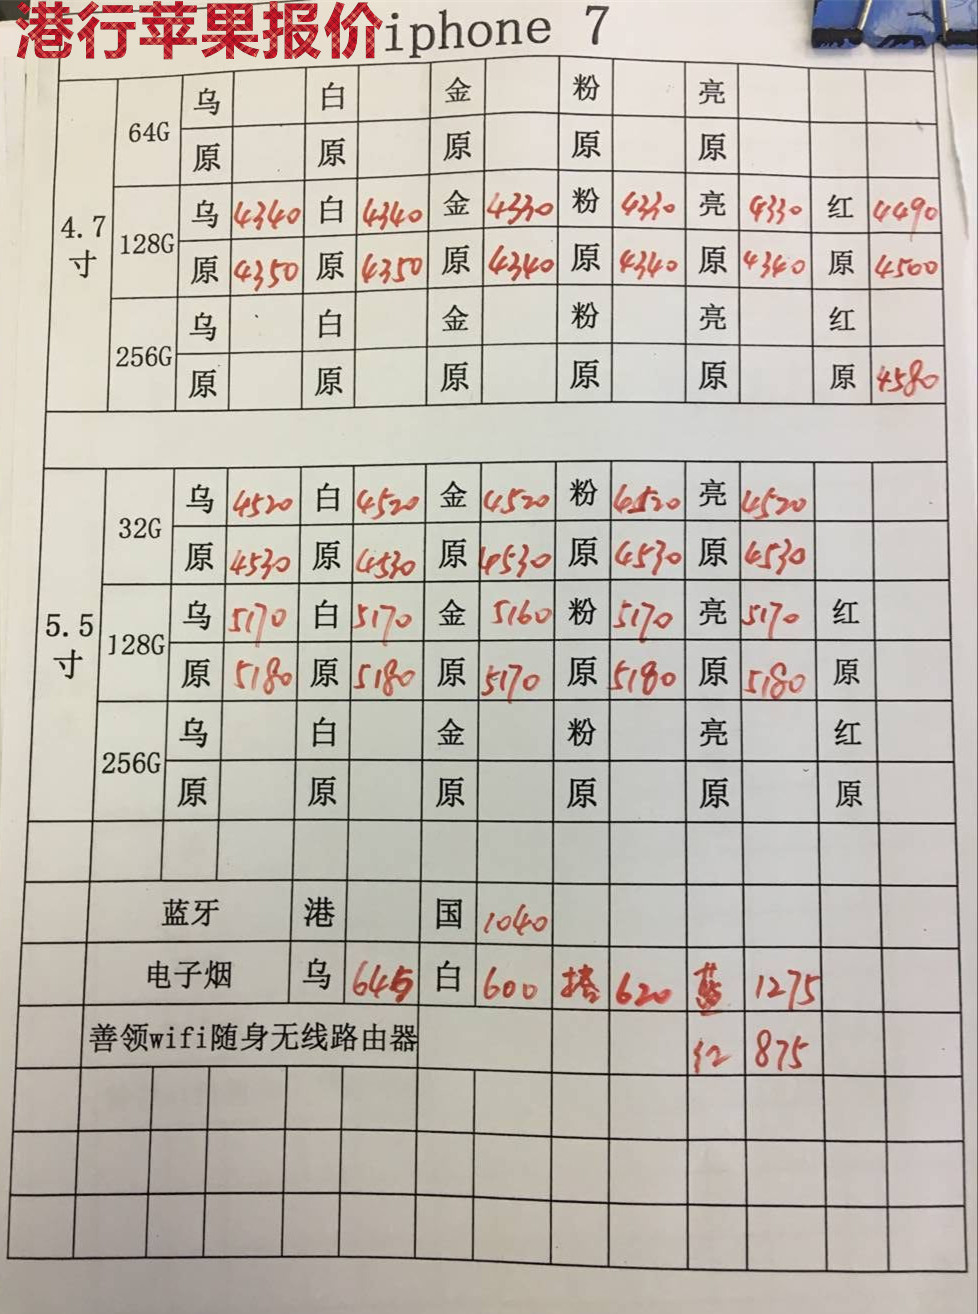 港行苹果报价 iphone 7
4.7寸
64G 乌 白 金 粉 亮
原 原 原 原 原
128G 乌 4340 白 4340 金 4330 粉 4330 亮 4330 红 4490
原 4350 原 4350 原 4340 原 4340 原 4340 原 4500
256G 乌 白 金 粉 亮 红
原 原 原 原 原 原 4580
5.5寸
32G 乌 4520 白 4520 金 4520 粉 4520 亮 4520
原 4530 原 4530 原 4530 原 4530 原 4530
128G 乌 5170 白 5170 金 5160 粉 5170 亮 5170 红
原 5180 原 5180 原 5170 原 5180 原 5180 原
256G 乌 白 金 粉 亮 红
原 原 原 原 原 原
蓝牙 港 国 1040
电子烟 乌 645 白 600 620 蓝 1275
善领wifi随身无线路由器 红 875